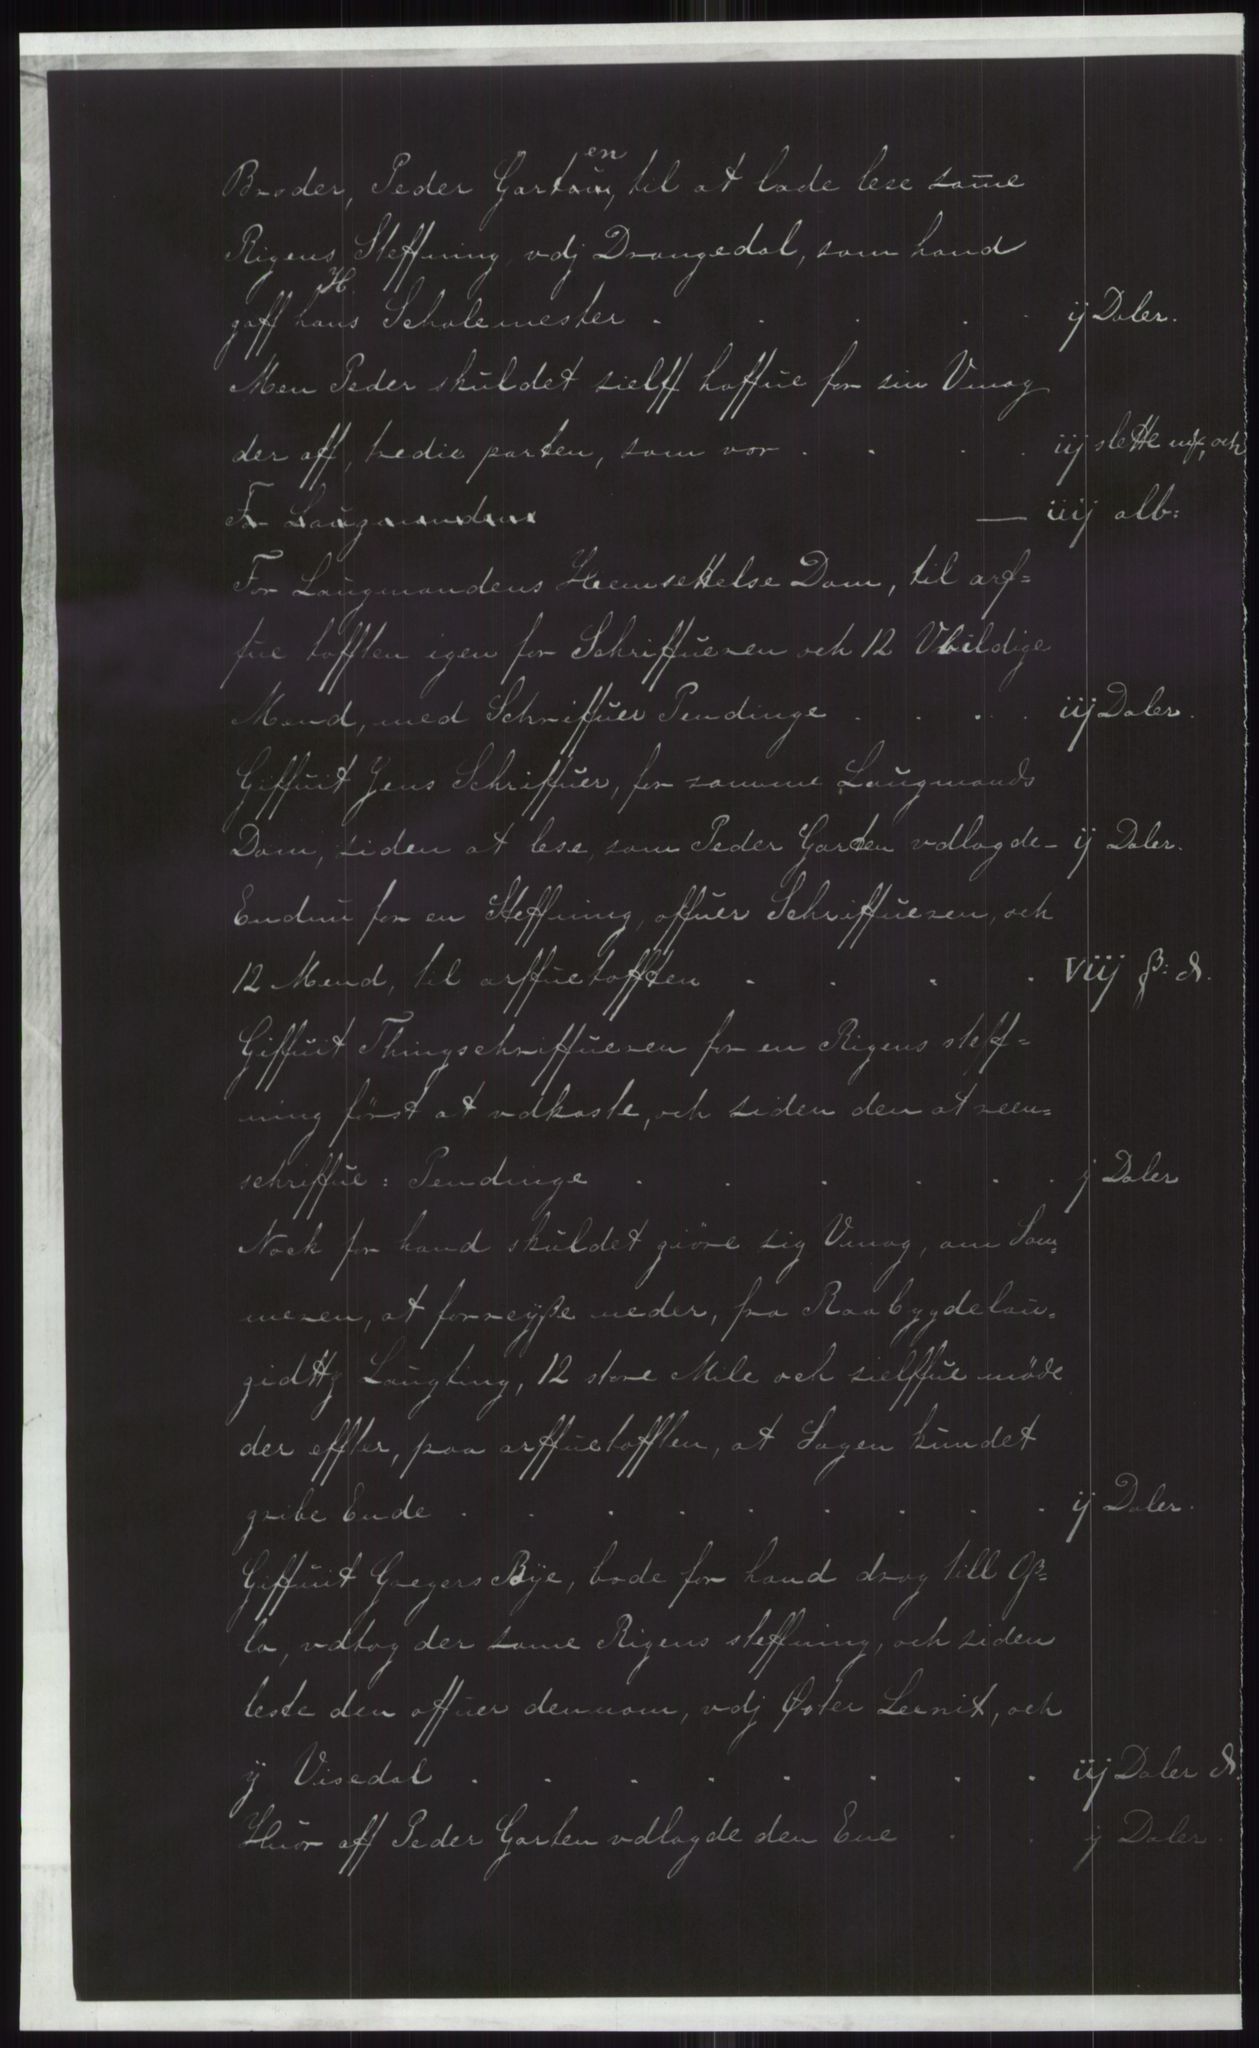 Broder, Peder Garten, til at lade lese same
Rigens Steffning, vdj Drangedal, som hand
gaff hans H Scholemester . . . . . ij Daler.
Men Peder skuldet sielff haffue for sin Vmag
der aff, tredie parten, som var . . . . iij slette mk, och
For Laugmandens — iiij alb:
For Laugmandens Heemsettelse Dom, til arf=
fue tofften igen for Schriffueren och 12 Vuildige
Mend, med Schriffuer Pendinge . . . . iij Daler.
Giffuit Jens Schriffuer, for samme Laugmands
Dom, siden at lese, som Peder Garten vdlagde - ij Daler.
Endnu for en Steffning, offuer Schriffueren, och
12 Mend, til arffuetofften . . . . viij ß: d.
Giffuit Thingschriffueren for en Rigens steff=
ning först at vdkaste, och siden den at reen=
schriffue: Pendinge . . . . . . j Daler
Noch for hand skuldet giöre sig Vmag, om Som=
meren, at forreyße neder, fra Raabygdelau=
gidtt Laugting, 12 store Mile och sielffue möde
der effter, paa arffuetofften, at Sagen kundet
gribe Ende . . . . . . . . ij Daler.
Giffuit Gregers Bye, bode for hand drog till Oß=
lo, vdtog der same Rigens steffning, och siden
leste den offuer dennom, vdj Øster Lernit, och
ÿ Visedal . . . . . . . iij Daler d.
Huor aff Peder Garten vdlagde den Ene . . j Daler.